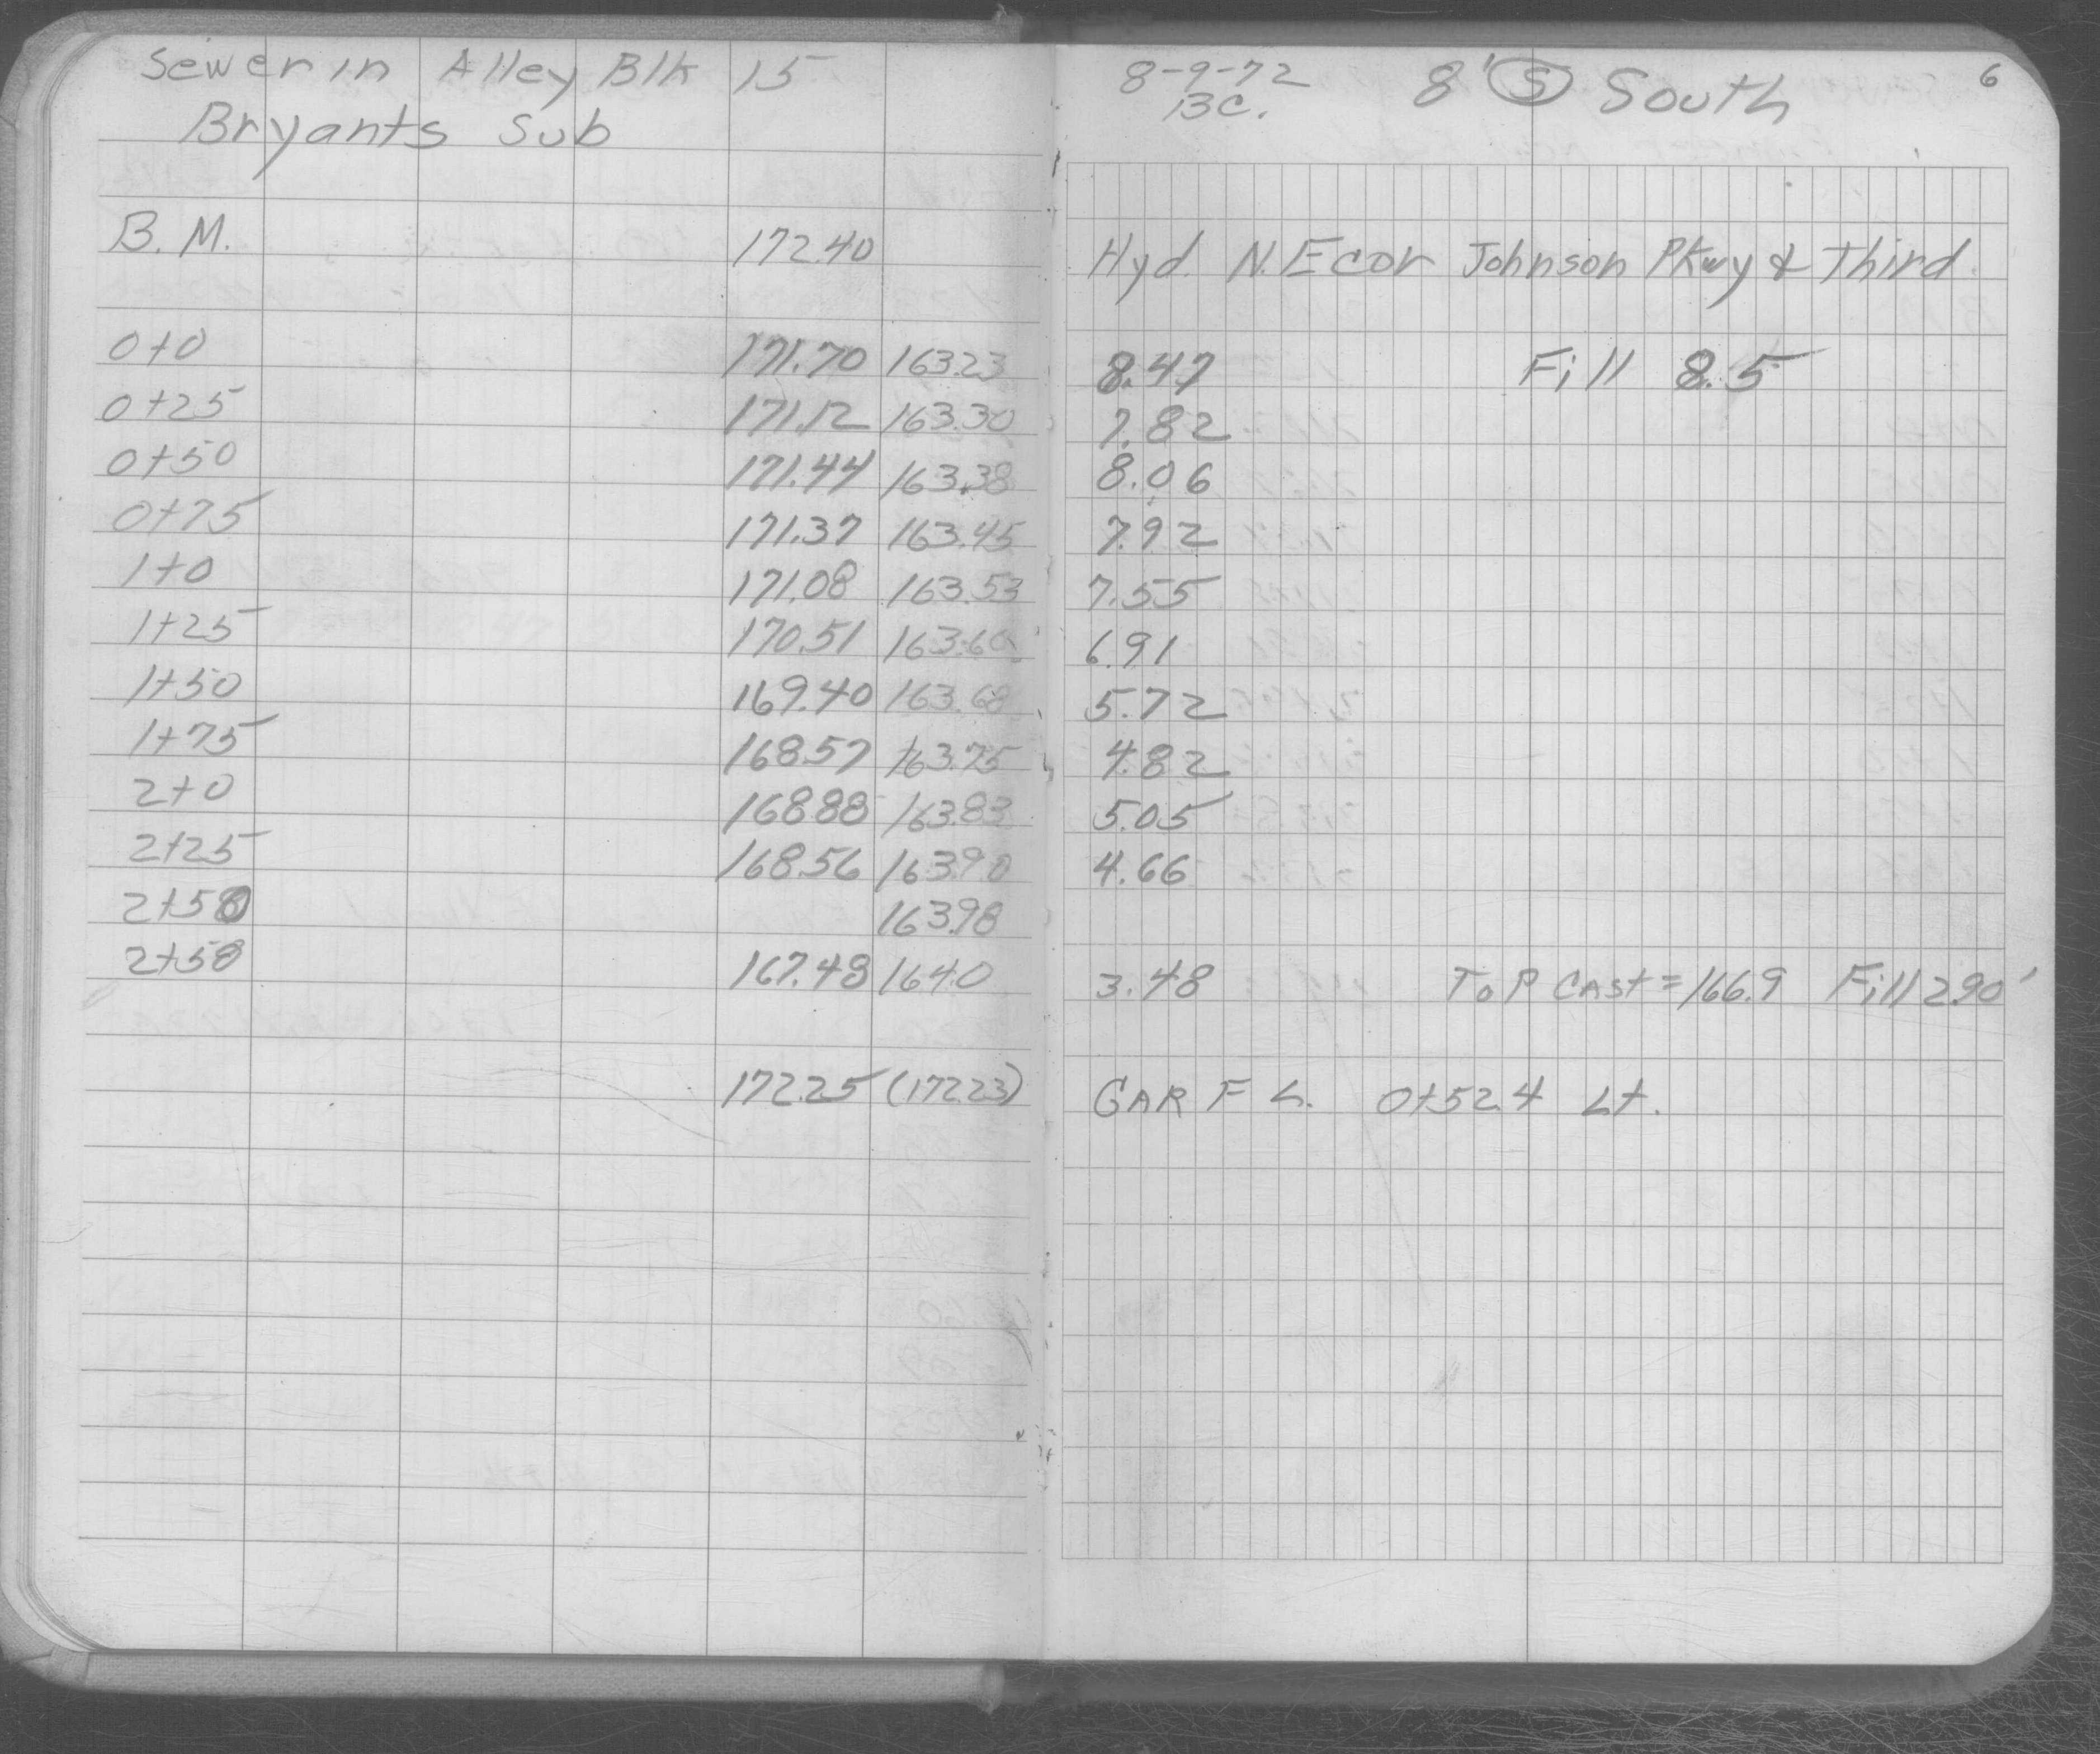 Sewer in Alley Blk 15
Bryants Sub
8-9-72 8' S South 6
BC.
B. M. 172.40 Hyd. N.E cor Johnson Pkwy & Third.
0+0 171.70 163.23 8.47 Fill 8.5
0+25 171.12 163.30 7.82
0+50 171.44 163.38 8.06
0+75 171.37 163.45 7.92
1+0 171.08 163.53 7.55
1+25 170.51 163.60 6.91
1+50 169.40 163.68 5.72
1+75 168.57 163.75 4.82
2+0 168.88 163.83 5.05
2+25 168.56 163.90 4.66
2+50 163.98
2+58 167.48 164.0 3.48 Top Cast = 166.9 Fill 2.90'
172.25 (172.23) GAR F L. 0+52.4 Lt.